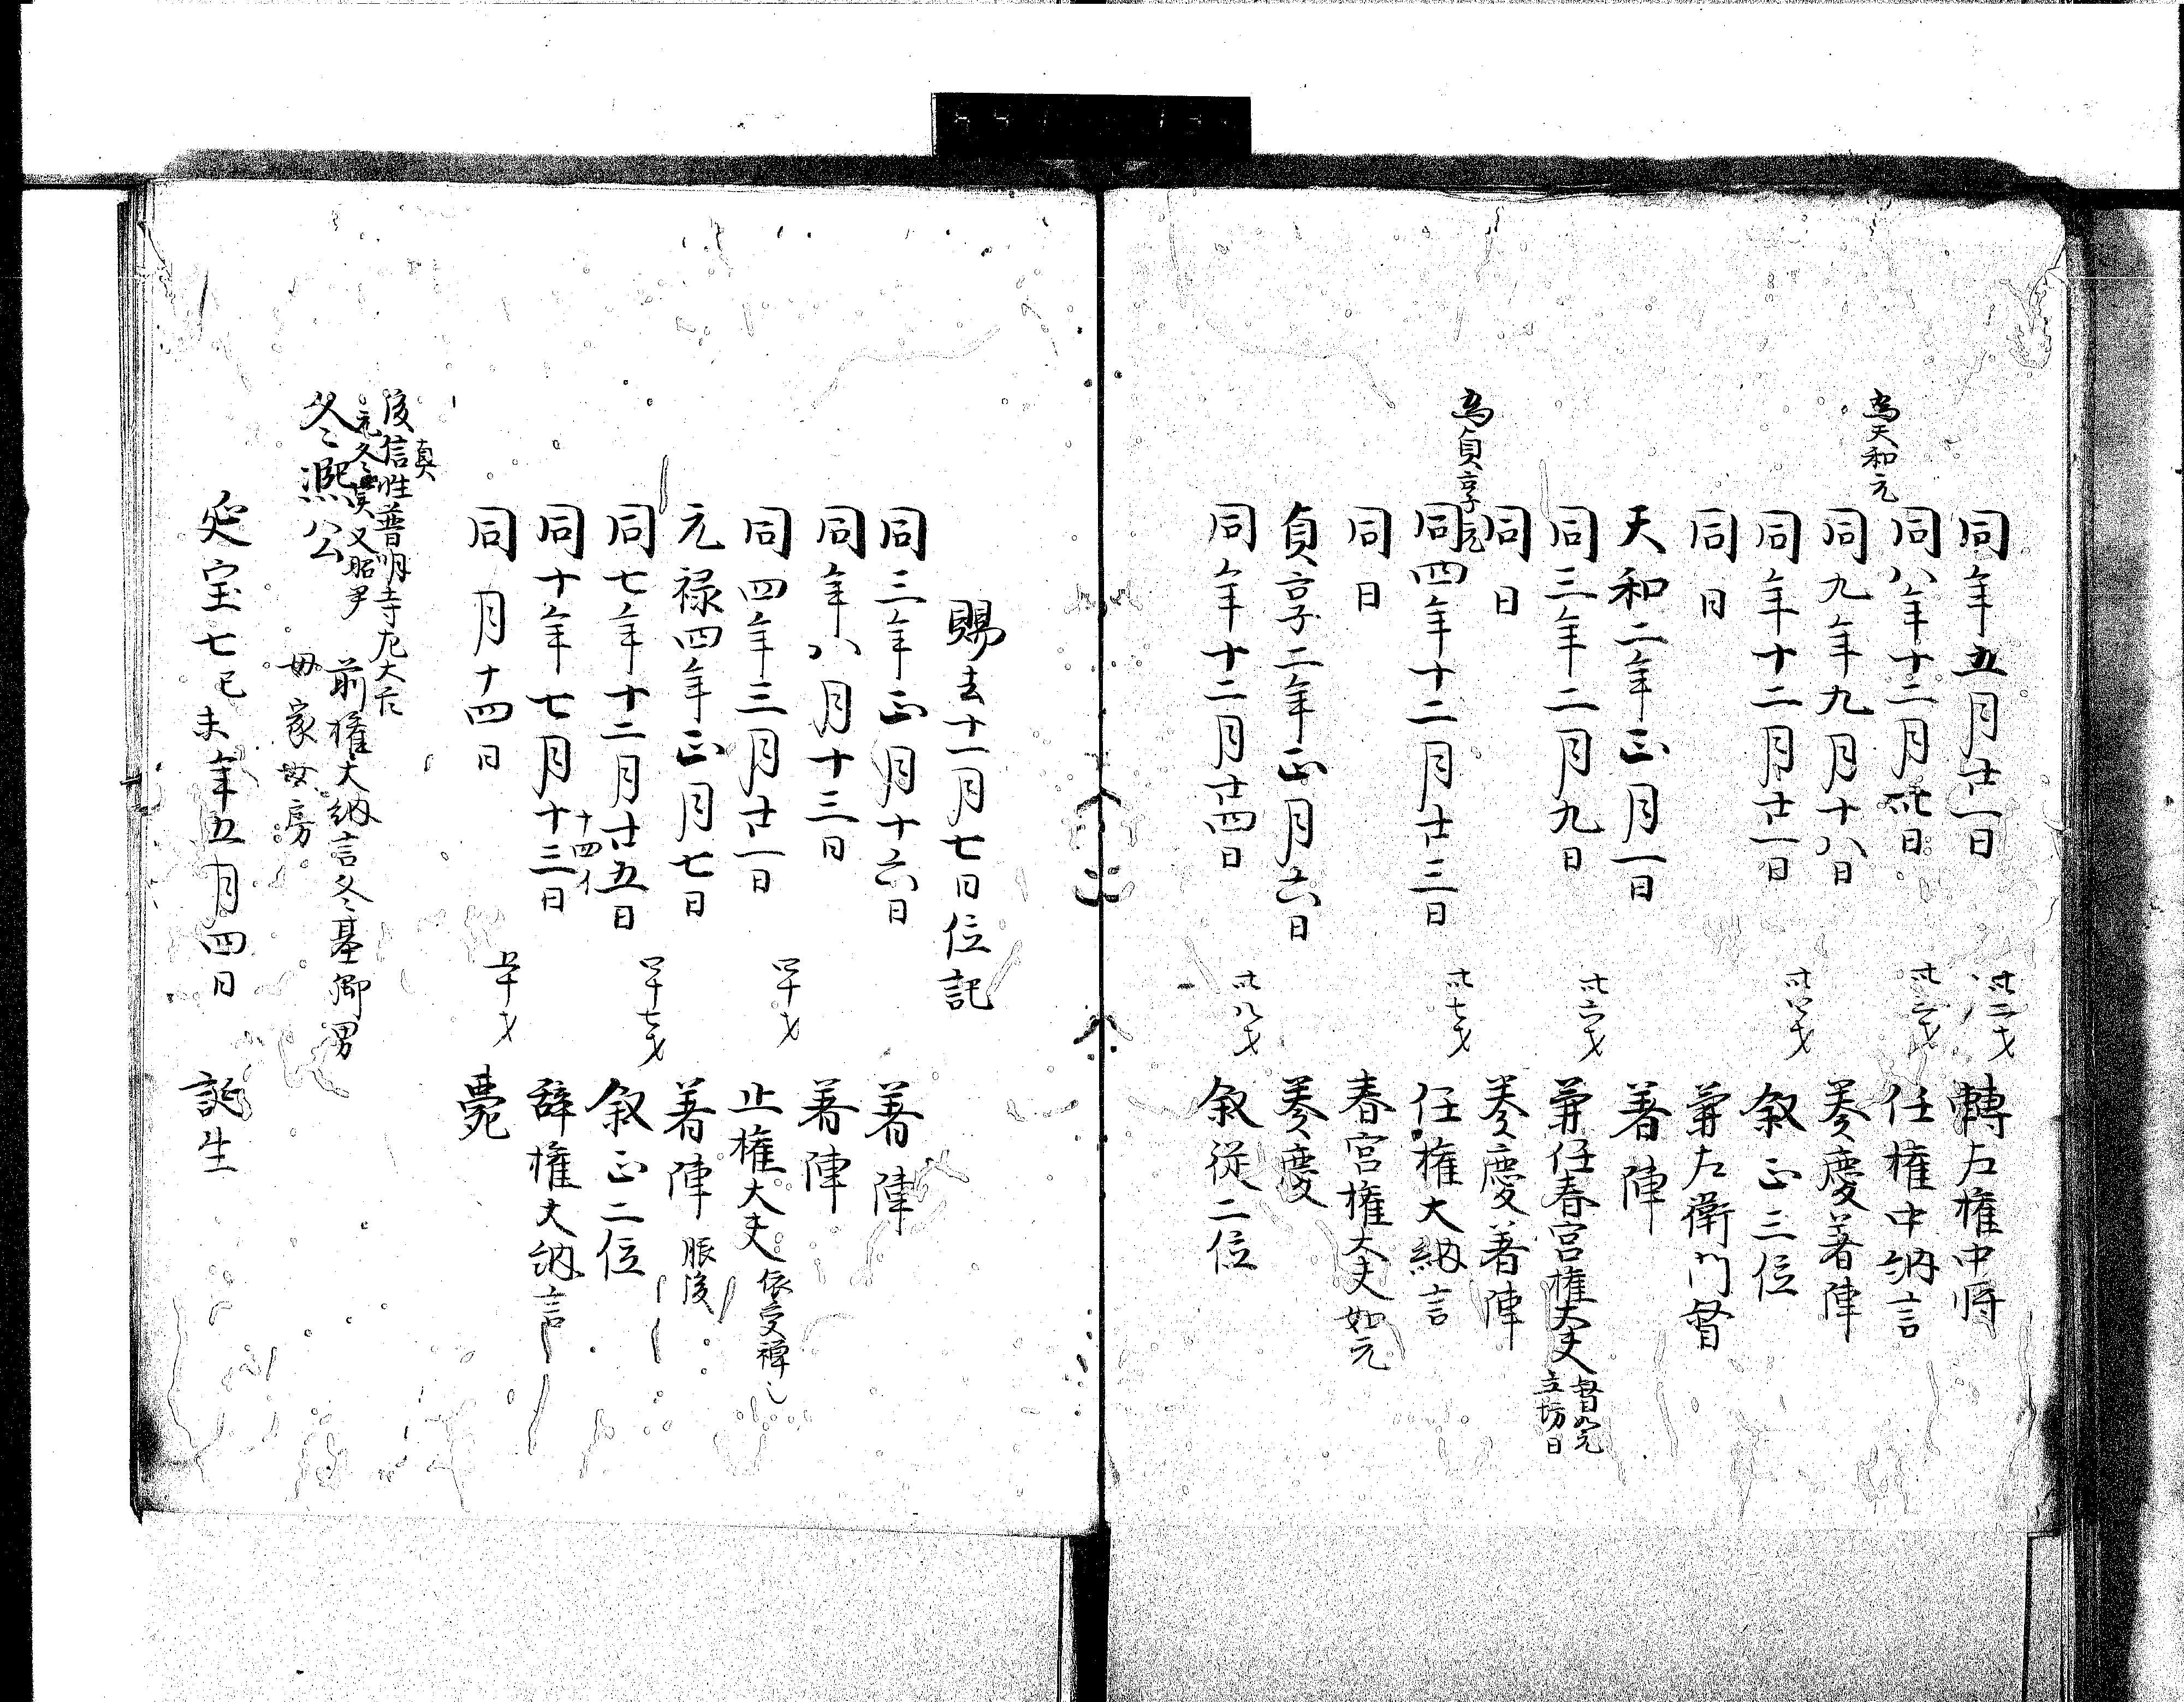 同年五月廿一日 卅二才 轉左権中将
為天和元
同八年十二月卅日 卅三才 任権中納言
同九年九月十八日 奏慶著陣
同年十二月廿一日 卅四才 叙正三位
同日 兼左衛門督
天和二年正月一日 著陣
同三年二月九日 卅六才 兼任春宮権大夫 督如元
立坊日
同日 奏慶著陣
為貞享元
同四年十二月廿三日 卅七才 任権大納言
同日 春宮権大夫如元
貞享二年正月六日 奏慶
同年十二月廿四日 卅八才 叙従二位
賜去十一月七日位記
同三年正月十六日 著陣
同年八月十三日 著陣
同四年三月廿一日 四十才 止権大夫 依受禅也
元禄四年正月七日 著陣 服後
同七年十二月廿五日 四十七才 叙正二位
十四イ
同十年七月十三日 辞権大納言
同月十四日 五十才 薨
真
後信性普明寺左大臣
元冬真又昭尹
冬熙公 前権大納言冬基卿男
母家女房
延宝七己未年五月四日 誕生